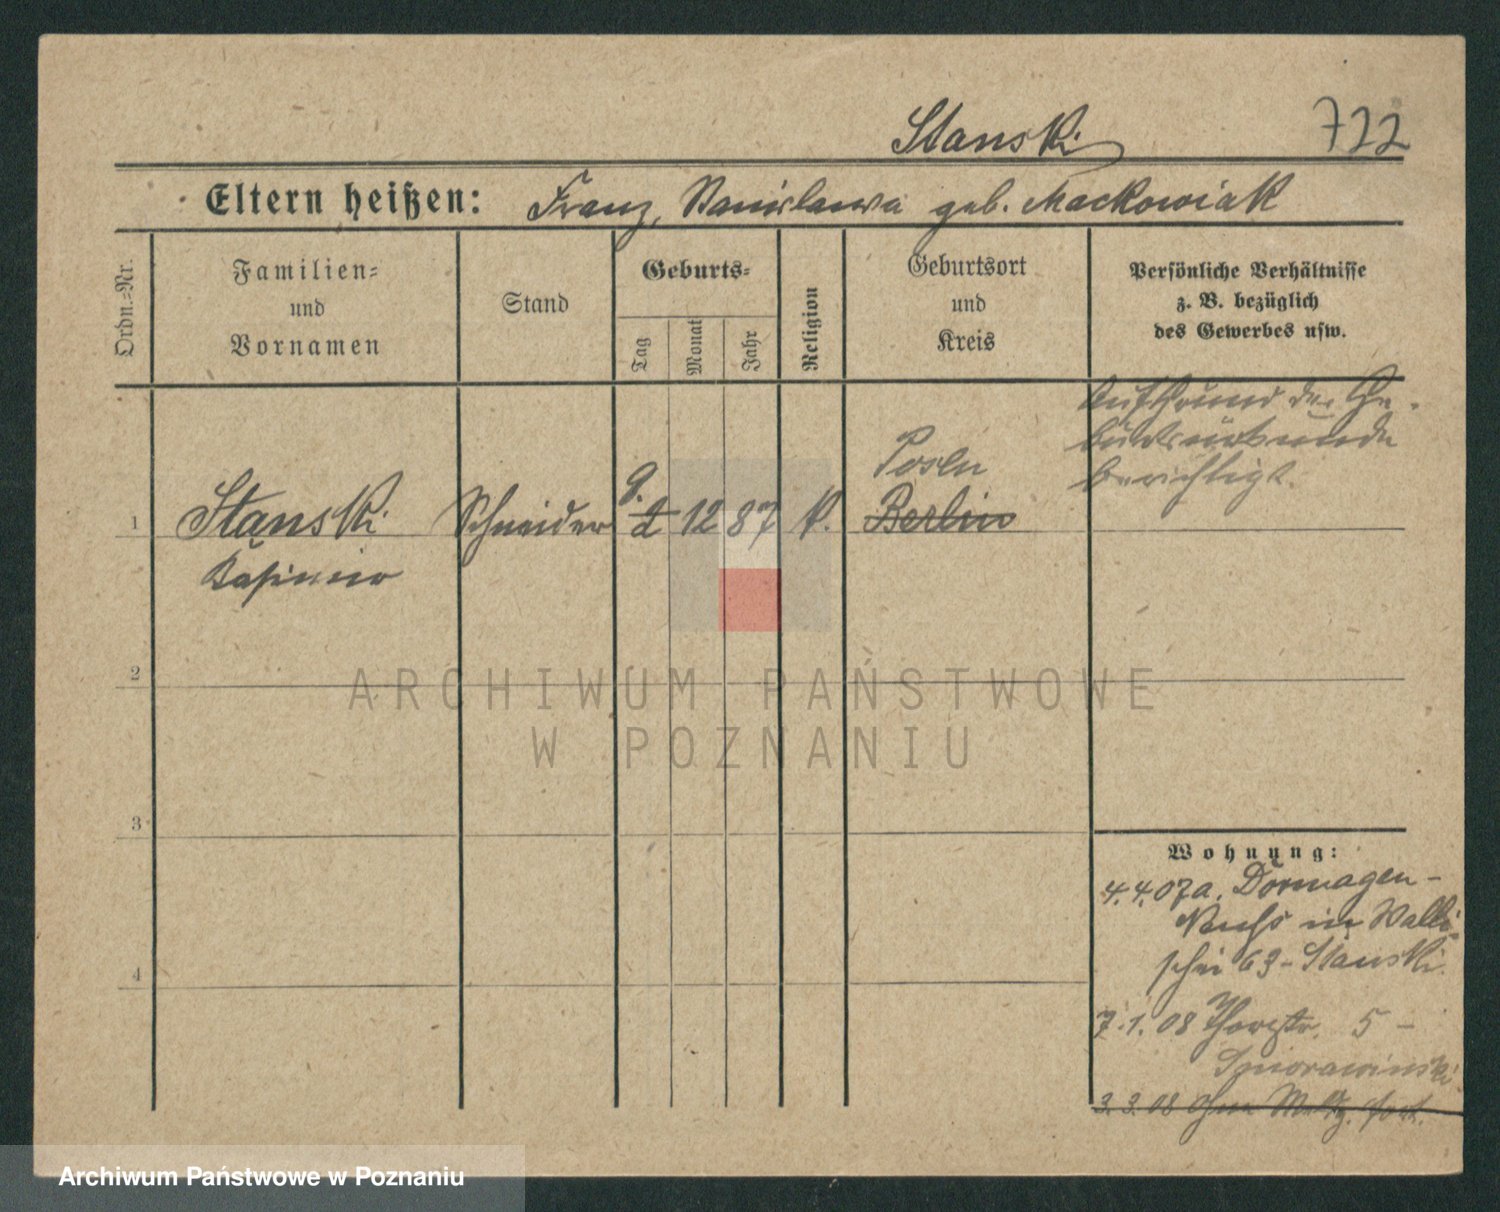 Stanski
722
Eltern heißen: Franz, Stanislawa geb. Mackowiak
Ordn.=Nr.
Familien=
und
Vornamen
Stand
Geburts=
Tag
Monat
Jahr
Religion
Geburtsort
und
Kreis
Persönliche Verhältnisse
z. B. bezüglich
des Gewerbes usw.
Auf Grund der Ge-
burtsurkunde
berichtigt.
Posen
9.
1 Stanski Schneider 2 12 87 k. Berlin
Kasimir
2
3
4
ARCHIWUM PAŃSTWOWE
W POZNANIU
Wohnung:
4.4.07 a. Dormagen-
Neuss in Walli-
schei 63 - Stanski.
7.1.08 5 -
3.3.08 ohne fort.
Archiwum Państwowe w Poznaniu